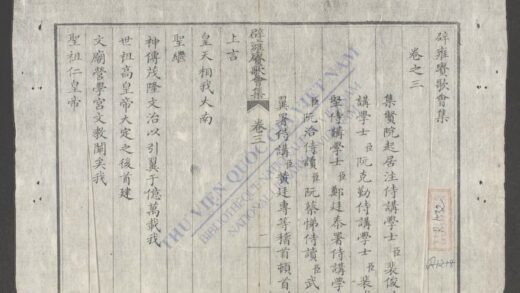 辟雍賡歌會集
卷之三
集賢院起居注侍講學士臣裴俊
講學士臣阮克勤侍講學士臣裴
堅侍講學士臣鄭廷泰署侍講學
臣阮洽侍讀臣阮棻悌侍讀臣武
翼署侍講臣黃廷專等稽首頓首
辟雍賡歌會集 卷三 一
上言
皇天相我大南
聖繼
神傳茂隆文治以引翼于億萬載我
世祖高皇帝大定之後首建
文廟營學宮文教闡矣我
聖祖仁皇帝
THƯ VIỆN QUỐC GIA VIỆT NAM
BIBLIOTHÈQUE
NATIONAL